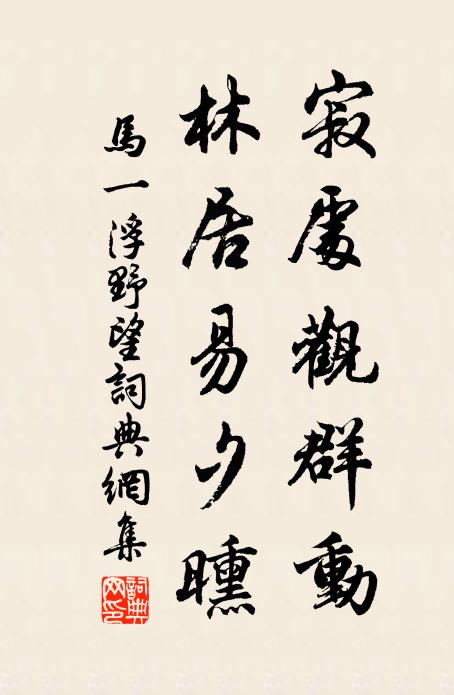 寂處觀群動
林居易夕曛
馬一浮野望詞典網集
詞典網印